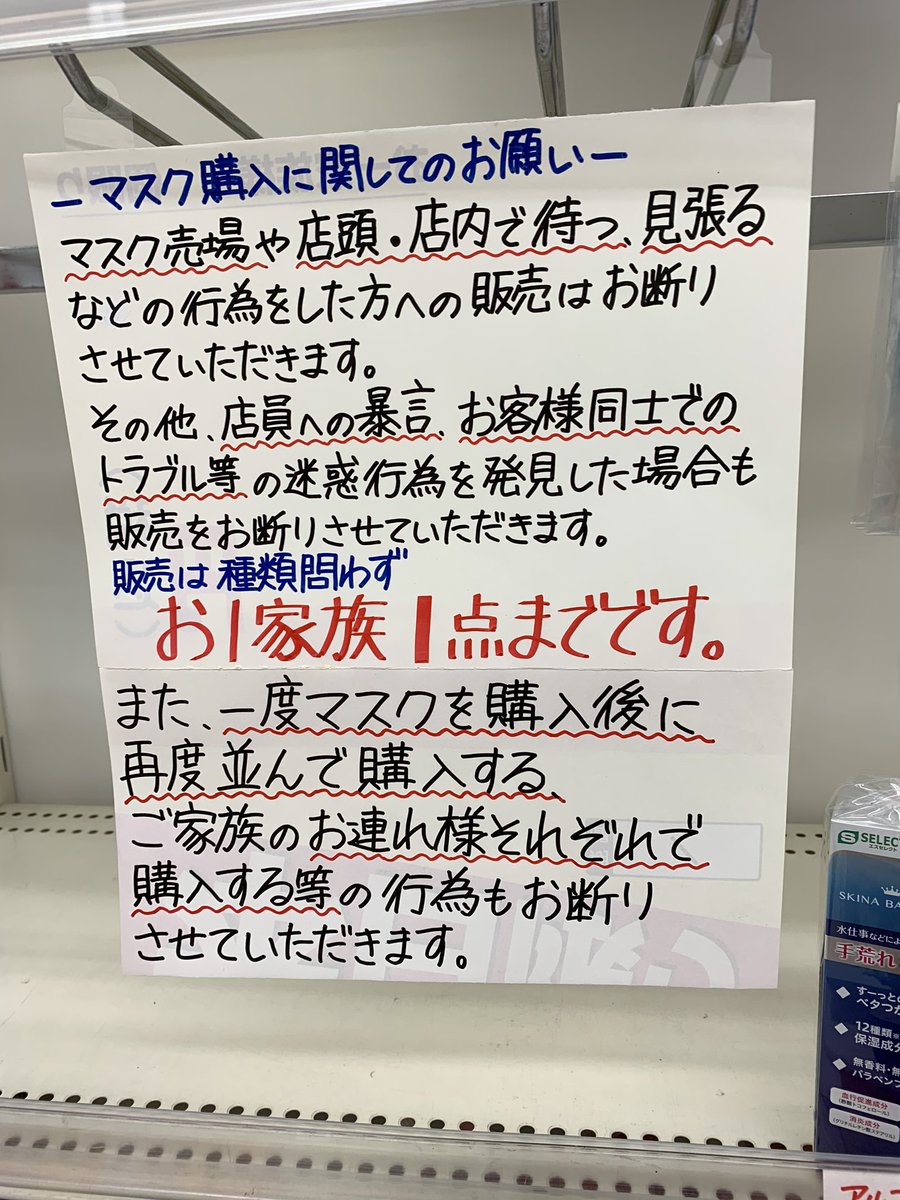 ーマスク購入に関してのお願いー
マスク売場や店頭・店内で待つ、見張る
などの行為をした方への販売はお断り
させていただきます。
その他、店員への暴言、お客様同士での
トラブル等の迷惑行為を発見した場合も
販売をお断りさせていただきます。
販売は種類問わず
お1家族1点までです。
また、一度マスクを購入後に
再度並んで購入する、
ご家族のお連れ様それぞれで
購入する等の行為もお断り
させていただきます。
SELEC
エスセレクト
SKINA BA
水仕事などによ
手荒れ
すーっとの
ベタつか
12種類※
保湿成分
無香料・無
パラベン
血行促進成分
消炎成分
アル